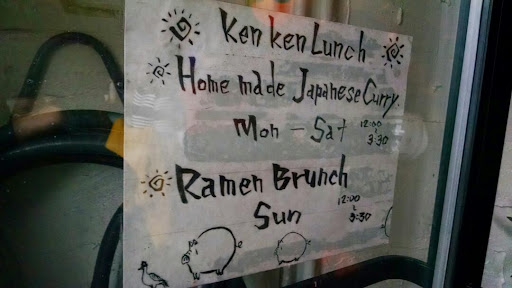 Ken ken Lunch
Home made Japanese Curry.
Mon - Sat 12:00
3:30
Ramen Brunch
Sun 12:00
3:30